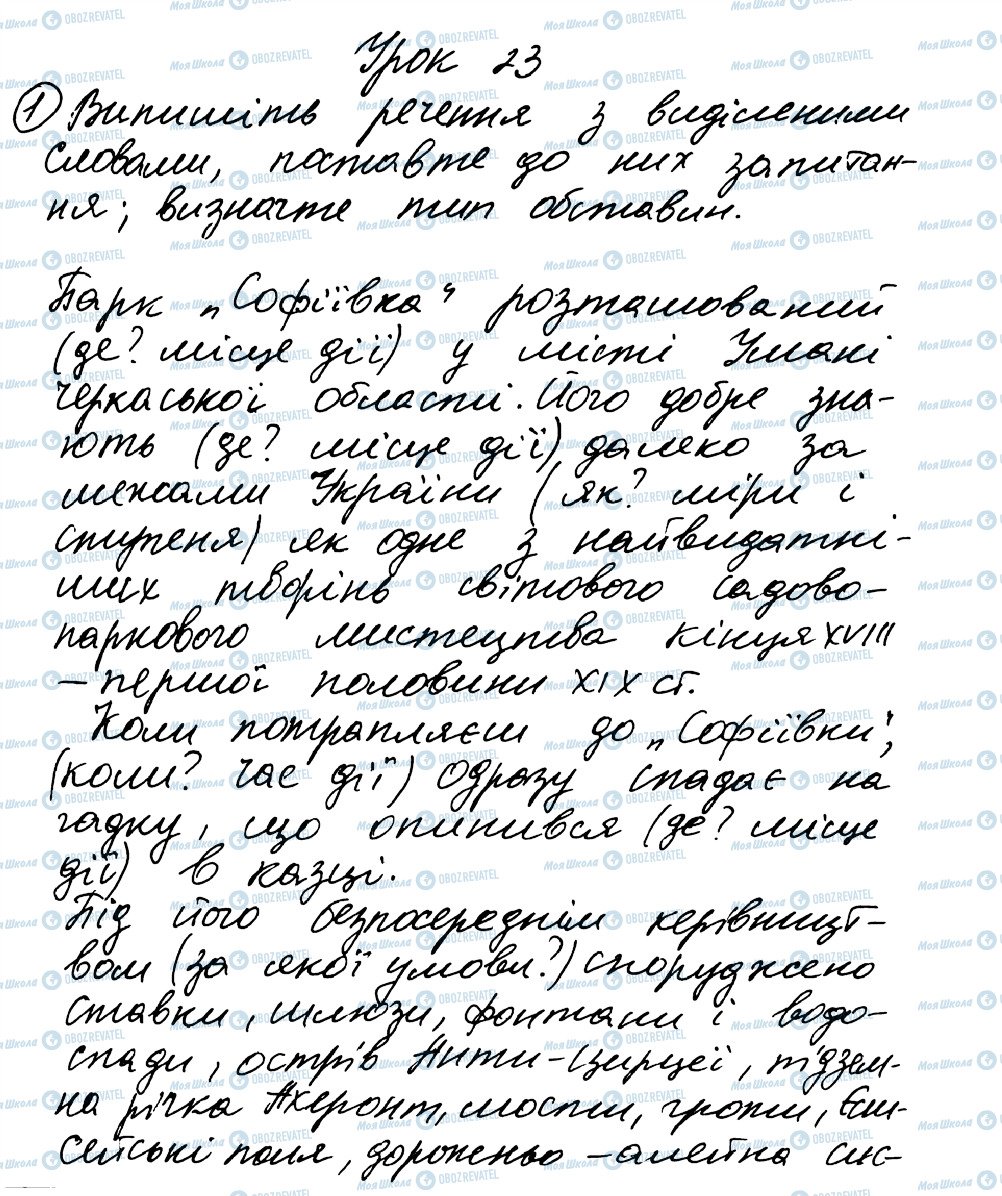 Урок 23
① Випишіть речення з виділеними
словами, поставте до них запитан-
ня; визначте тип обставин.
Парк „Софіївка" розташований
(де? місце дії) у місті Умані
Черкаської області. Його добре зна-
ють (де? місце дії) далеко за
межами України (як? міри і
ступеня) як одне з найвидатні-
ших творінь світового садово-
паркового мистецтва кінця XVIII
– першої половини XIX ст.
Коли потрапляєш до „Софіївки",
(коли? час дії) одразу спадає на
гадку, що опинився (де? місце
дії) в казці.
Під його безпосереднім керівницт-
вом (за якої умови?) споруджено
ставки, шлюзи, фонтани і водо-
спади, острів Анти-Цирцеї, підзем-
на річка Ахеронт, мости, гроти, Єли-
сейські поля, дорожньо – алейна сис-